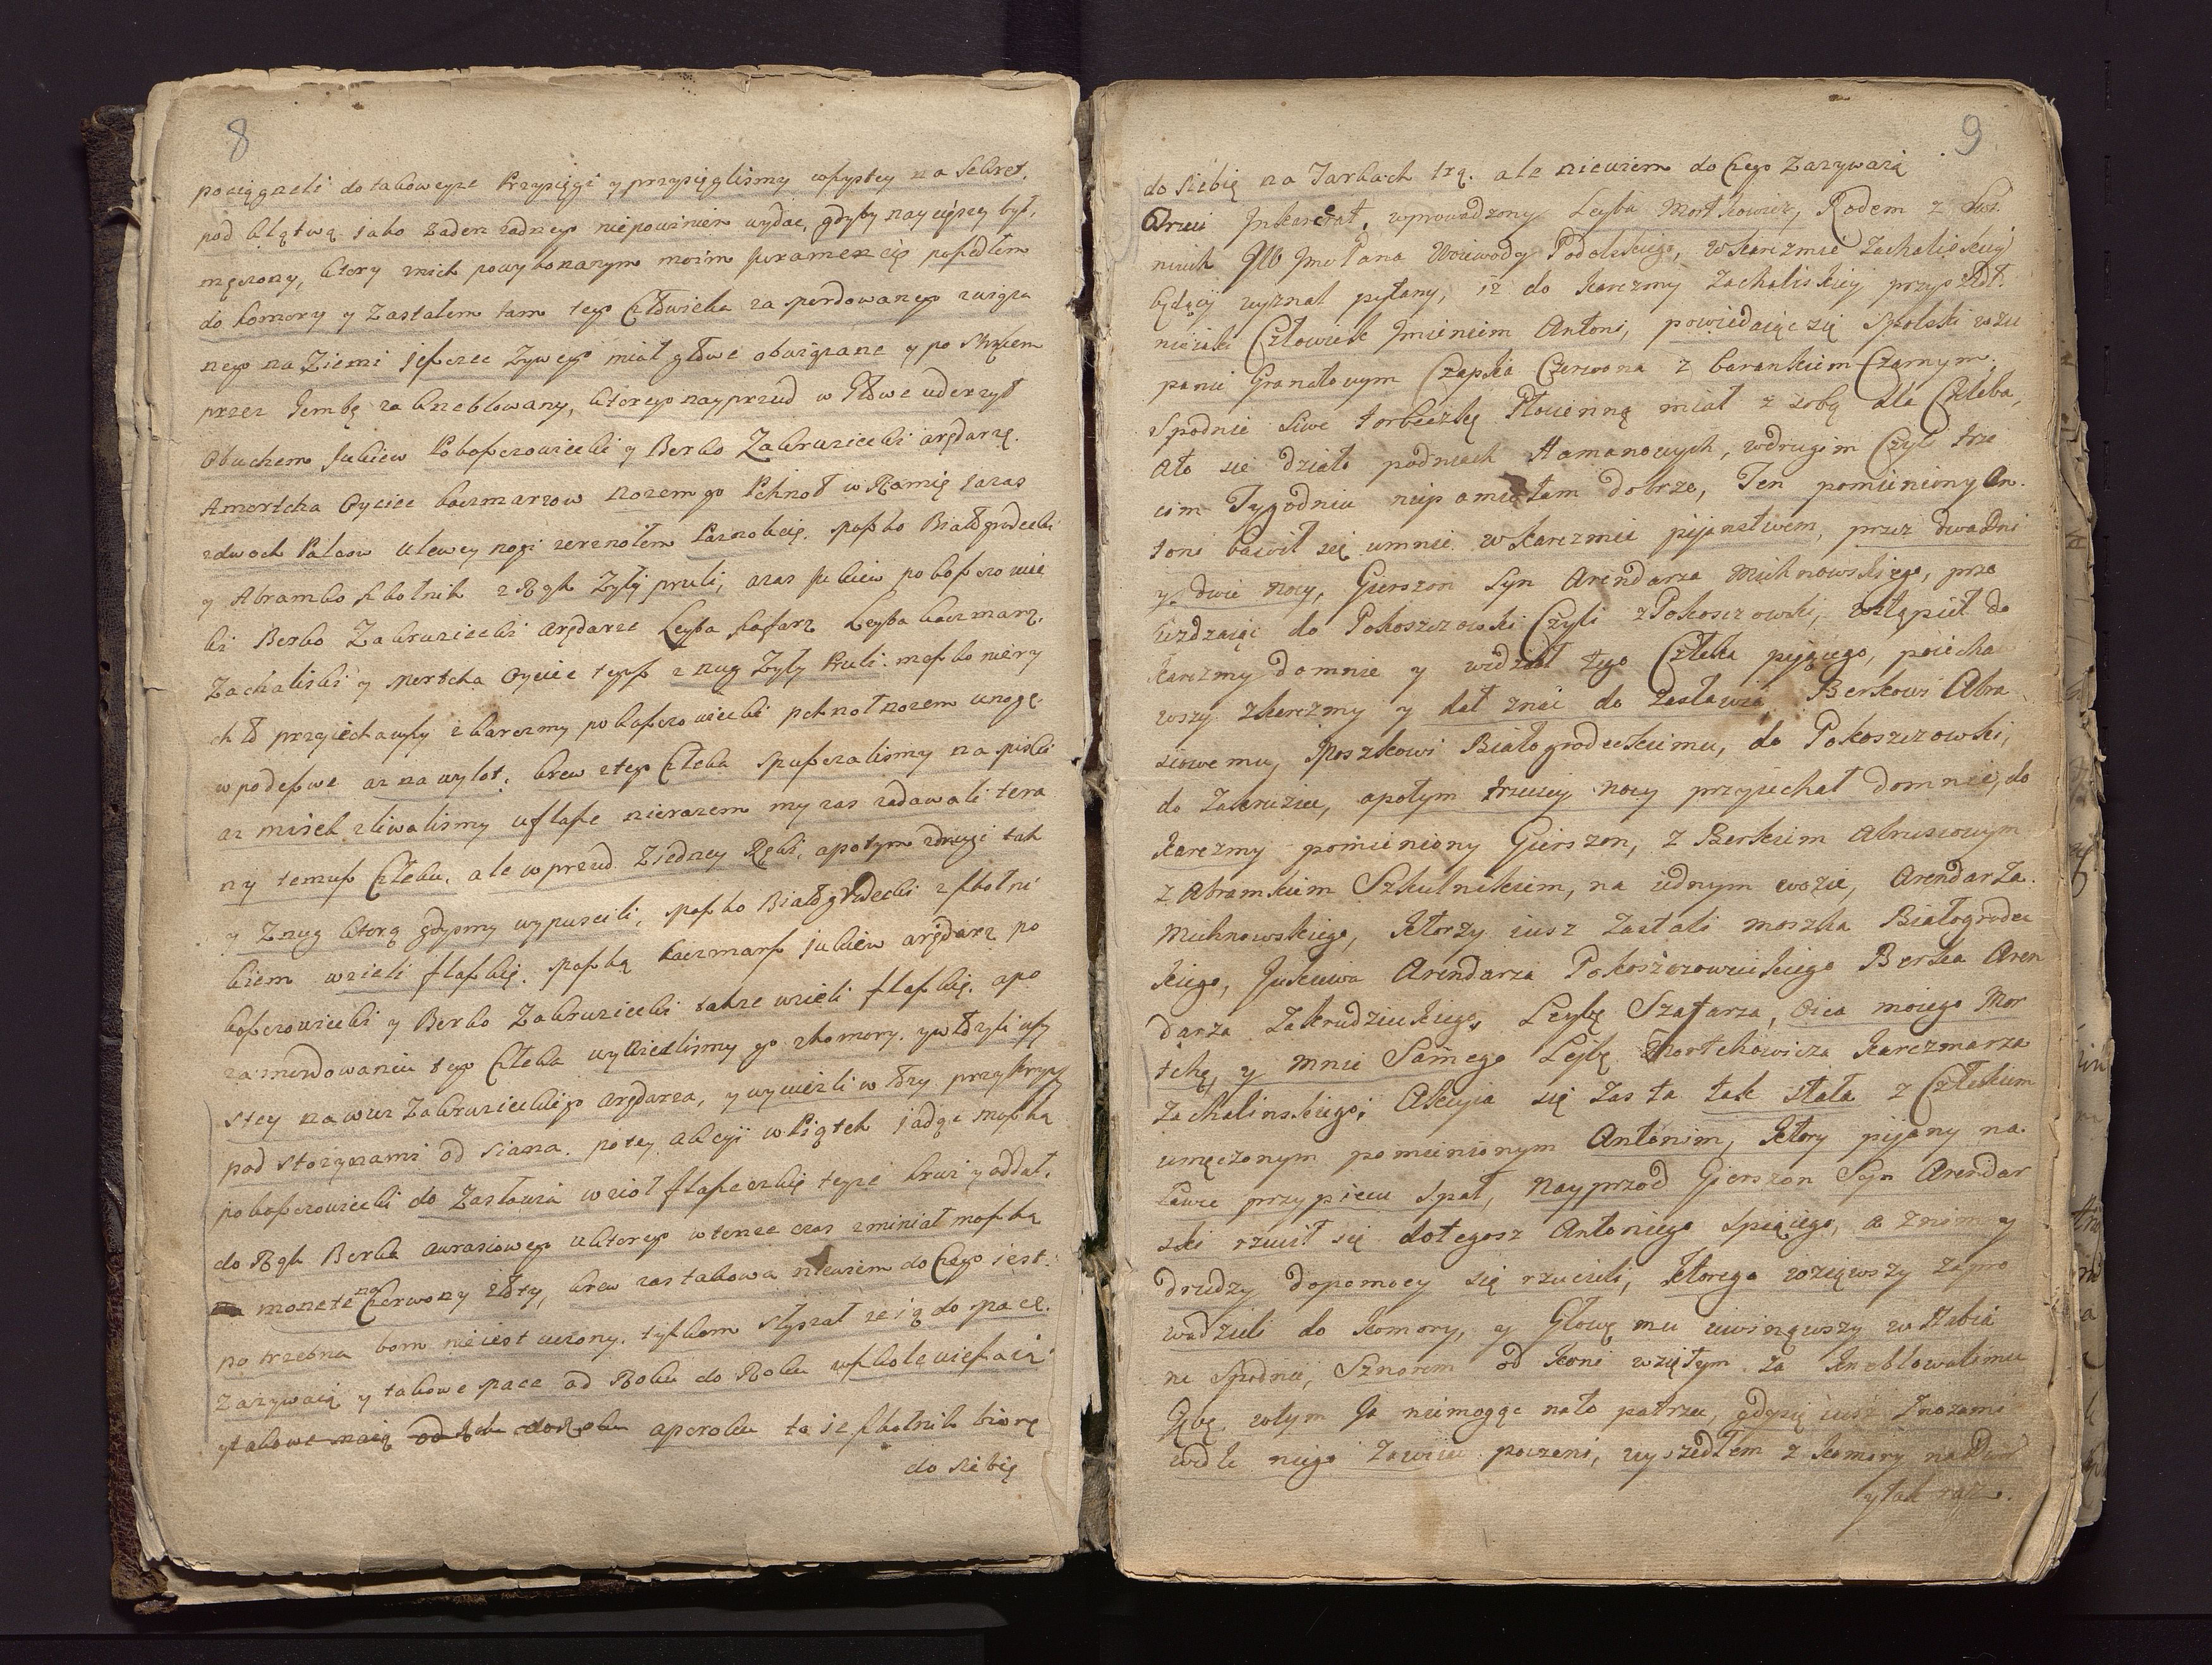 8
pociągneli do takoweyze Przysięgi y przysięgliśmy wszystcy na Sekret.
pod klątwą jako zaden zadnego niepowinien wydac, gdyby naycięzey był,
męczony, ktory znich powykonanym moim juramencię poszedłem
do komory y Zastałem tam tego Człowieka zasperdowanego związa
nego na Ziemi jeszcze Zywego miał głowe obwiązane y po
przez Gembę zakneblowany, ktorego nayprzud w Głowe uderzył
Obuchem Jukiew Pokoszczowiecki y Berko Zakruziecki arędarze.
A mortcha Oyciec karczmarzow nozem go Pchnoł w Ramię zaraz
zdwoch Palcow Ulewey nogi zerznołem Paznokcię. Moszko Białogrodecki
y Abramko szkolnik z Rąk Zyły pruli, azas Jukiew pokoszczowie
ki Berko Zakruziecki arędarze Leyba szafarz Leyba karczmarz,
Zachaliski y Mortcha Oyciec tegosz z nug Zyły Pruli. moszko
przyiechawszy z karczmy pokoszczowiecki pchnoł nozem unogę
w podeszwe az na wylot. krew ztego Człeka Spuszczalismy na
az zliwalismy uflasze nierazem my zas zadawali
ny temusz Człeku, ale w przud Ziedney Ręki, apotym zdrugi tak
y Znug ktorą gdysmy wypuscili, Moszko Białogrodecki z szkolni
kiem wzieli flaszkę. Moszko karczmarz Jukiew arędarz po
koszczowiecki y Berko Zakruziecki takze wzieli flaszkę. apo
zamordowaniu tego Człeka wynieslismy go zkomory. y włozyli
stey na wuz Zakruzieckiego arędarza, y wywiezli w przykryszy
pod stozynami od Siana. potey akcyi w Piątek jadąc Moszko
pokoszczowiecki do Zasławia wzioł flaszeczkię teyze krwi y oddał.
do Rąk Berka awrasiowego uktorego wtenze czas zminiał moszko
monete na Czerwony złoty, krew zas takowa niewiem do Czego jest.
potrzebna bom nieiest uczony. tylkom słyszał ze ią do
Zazywaią y takowe pace od Roku do Roku wszkole wieszaią
ytakowe maią od Roku do Roku aporoku to ie szkolnik biorę
do siebię
9
do siebię na Tarkach trą. ale niewiem do Czego Zazywaią
Trzeci Inkarcerat, wprowadzony Leyba Mortkowicz, Rodem z
JW Jmć Pana Woiewody Podolskiego, w karczmie Zachaliskiey
będący zeznał pytany, iż do karczmy Zachaliskiey przyszedł
nieiaki Człowiek Imieniem Antoni, powiedaiąc się Spolski wżu
panie Granatowym Czapka Czerwona z barankiem Czarnym.
Spodnie Siwe torbeczkę Płocienną miał z sobą dla Chleba,
Ato się działo podniach Hamanowych, wdrugim Czyli trze
cim Tygodniu niepamiętam dobrze, Ten pomieniony An
toni bawił się umnie w karczmie pijanstwem, przez dwa dni
y dwie nocy, Gierszon Syn Arendarza Michnowskiego, prze
iezdzaiąc do Pokoszczowki Czyli z Pokoszczowki, wstąpił do
karczmy domnie y widział tego Człeka pijącego, poiecha
wszy zkarczmy y dał znać do Zasławia Berkowi Abra
siowemu, Moszkowi Białogrodeckiemu, do Pokoszczowki,
do Zakruziec, apotym trzeciey nocy przyiechał domnie, do
karczmy pomieniony Gierszon, z Berkiem Abrusiowym
z Abramkiem Szkulnikiem, na iednym wozie, Arendarża
Michnowskiego, ktorzy iusz zastali moszka Białogrodec
kiego, Jukiewa Arendarza Pokoszczowieckiego Berka Aren
darza Zakrudzieckiego, Leybę Szafarza, Oica moiego Mor
tchę, y mnie Samego Lejbę Mortchowicza karczmarza
Zachalinskiego; Akcyia się zas ta tak stała z Człekiem
umęczonym pomienionym Antonim, ktory pijany na
Ławie przypiecu spał, nayprzod Gierszon Syn Arendar
ski rzucił się dotegosz Antoniego spiącego, a znim y
drudzy dopomocy się rzucieli, ktorego wziąwszy zapro
wadzieli do komory, y Głowę mu uwinąwszy w
ne Spodnie, Sznorem od koni wziętym zakneblowalimu
Gębę, wtym Ja niemogąc nato patrzeć, gdysię iusz znozami
wedle niego zowiiać poczeni, wyszedłem z komory na Dwor
y tak